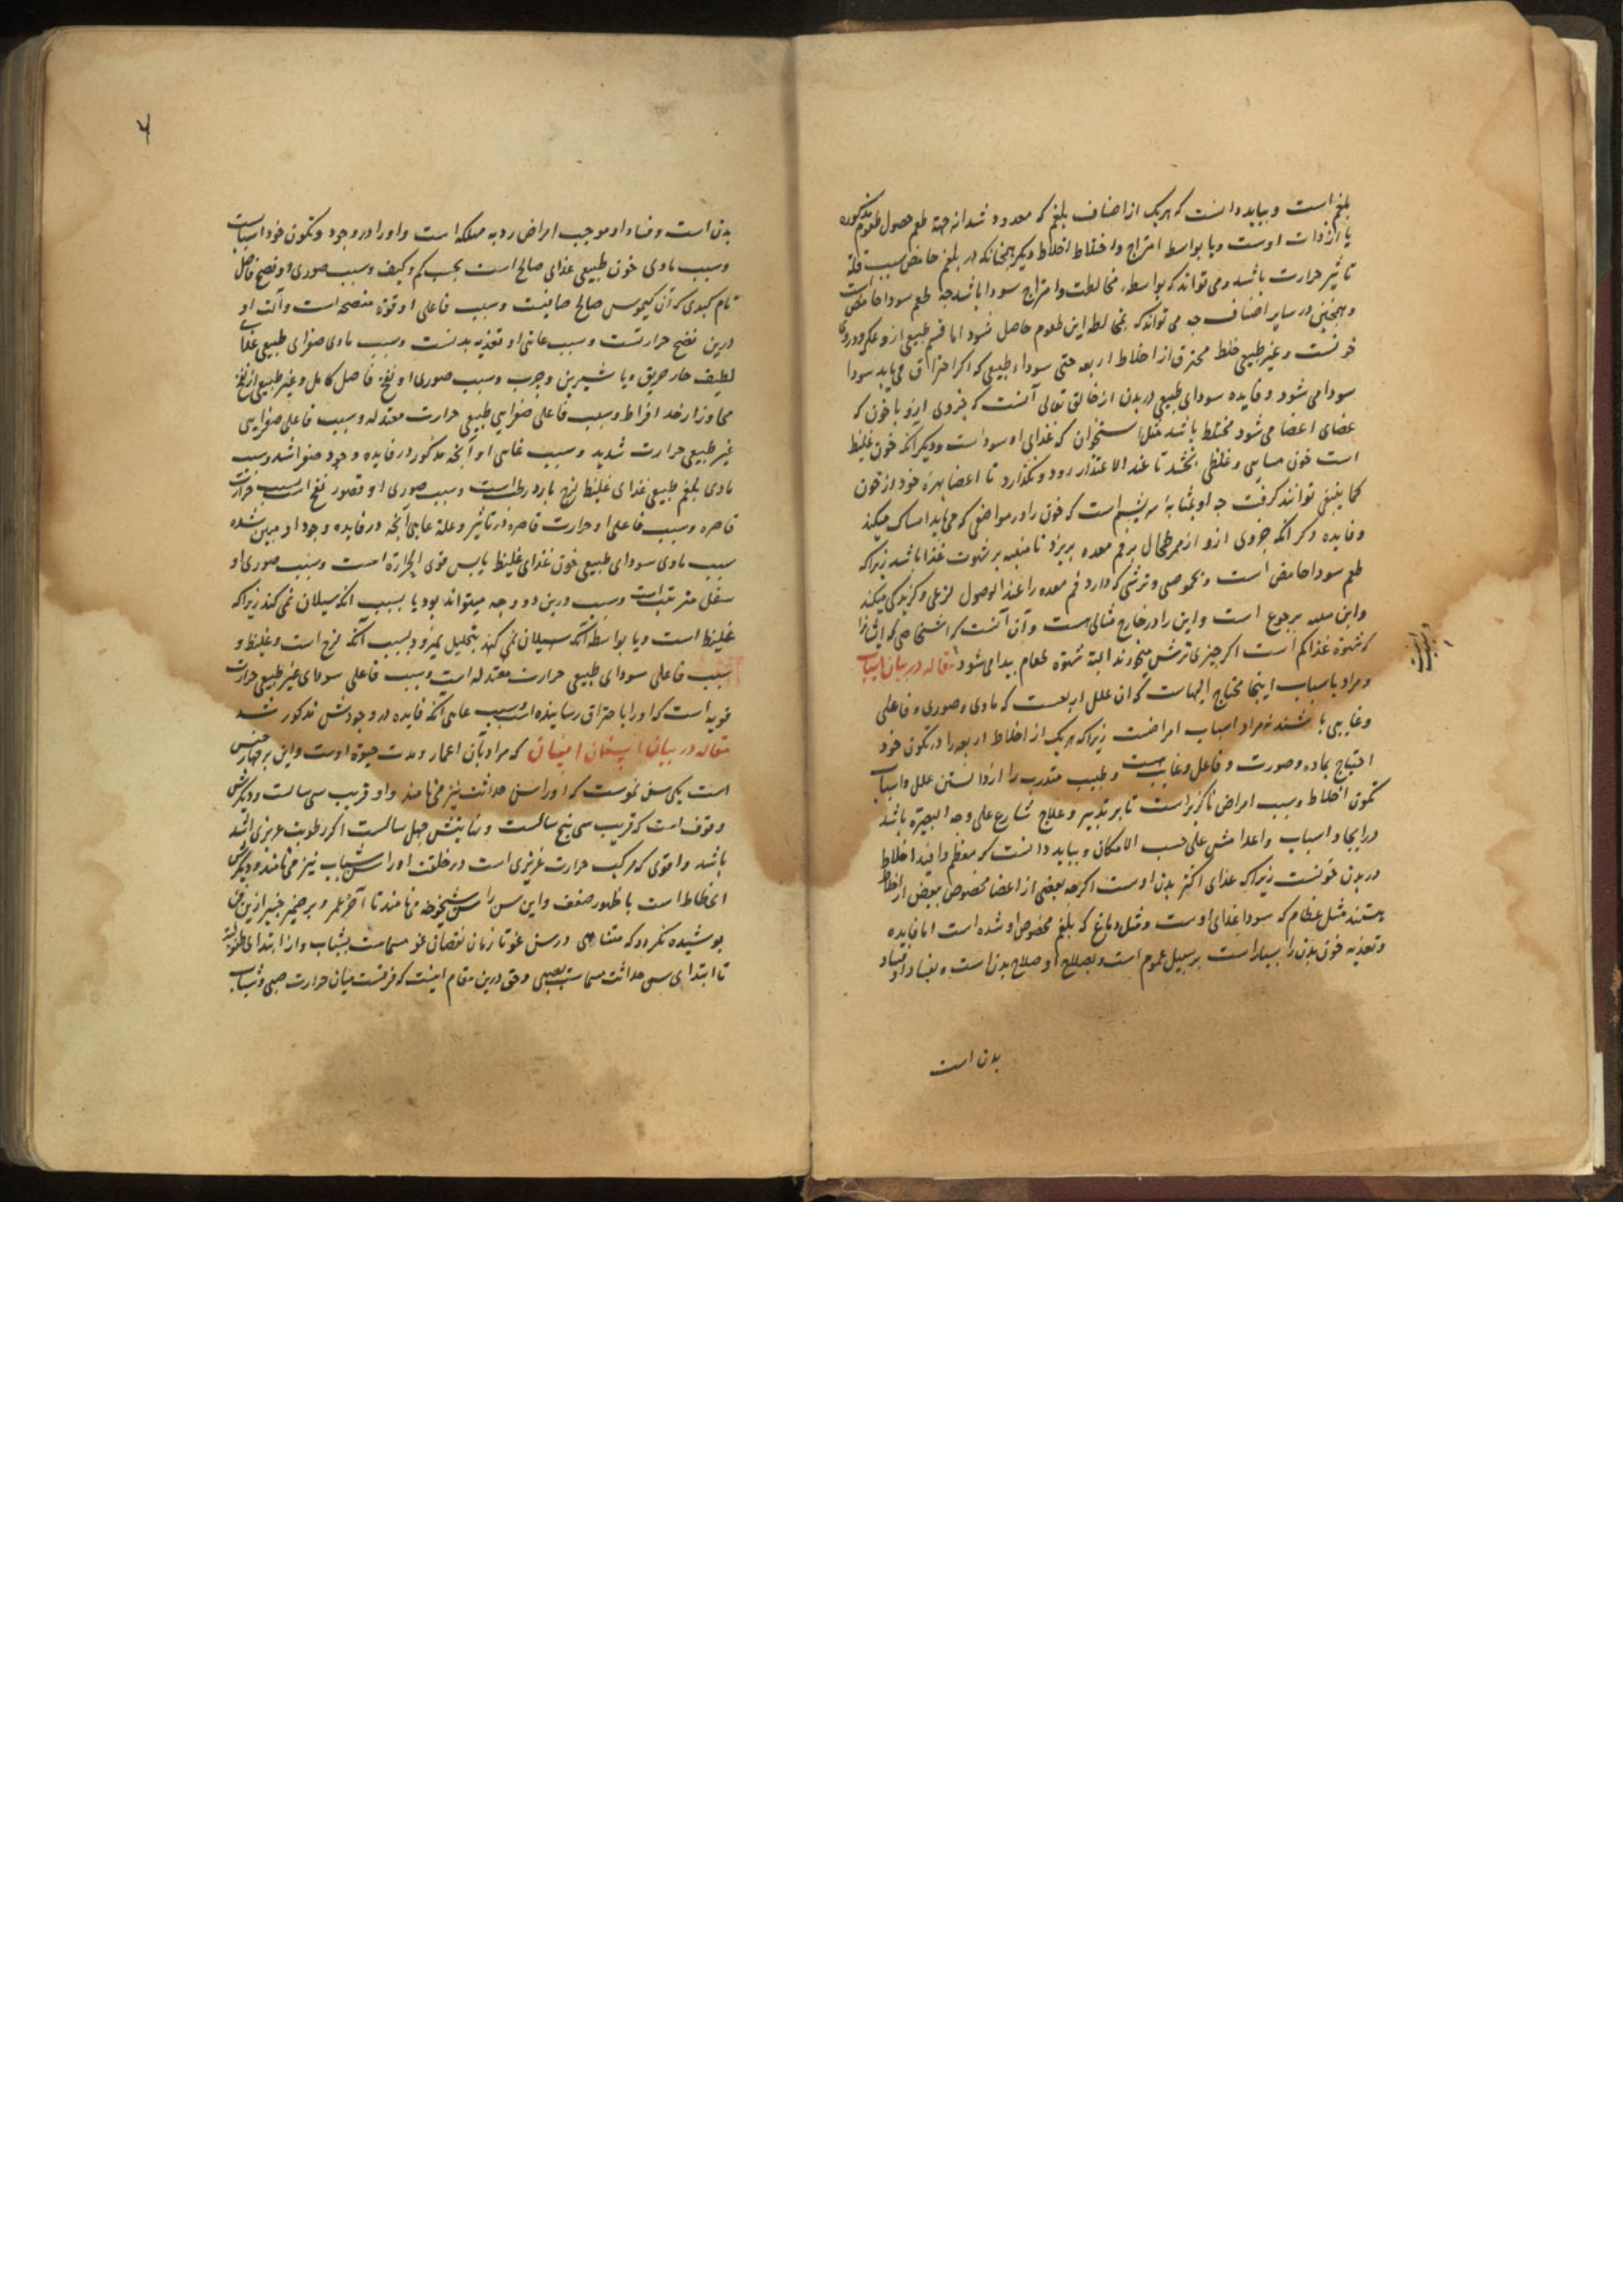 بلغم است و بباید دانست که هر یک از اصناف بلغم که معدود شد از جهة طعم حصول طعوم مذکوره
یا از ذات اوست و یا بواسطه امتزاج و اختلاط اخلاط دیگر همچنانکه در بلغم حامض سبب قلة
تاثیر حرارت باشد و می تواند که بواسطه مخالطت و امتزاج سودا باشد چه طعم سودا حامض است
و همچنین در سایر اصناف چه می تواند که بمخالطه این طعوم حاصل شود اما قسم طبیعی از و عکر و دردی
خونست و غیر طبیعی خلط محترق از اخلاط اربعه حتی سوداء طبیعی که اکر احتراق می یابد سودا
سودا می شود و فایده سودای طبیعی در بدن از خالق تعالی آنست که جزوی ازو با خون که
غذای اعضا می شود مختلط باشد مثل استخوان که غذای او سوداست و دیکر انکه خون غلیظ
است خون و غلظی بخشد تا عند الاغتذار رود و نکذارد تا اعضا بهره خود از خون
کما ینبغی توانند کرفت چه او بمثابه سریشم است که خون را در مواضعی که می باید امساک میکند
و فایده دکر انکه جزوی ازو از ممر طحال بر فم معده بریزد تا منبه بر شهوت غذا باشد زیراکه
طعم سودا حامض است و بحموضی و ترشی که دارد فم معده را عند الوصول لزعی و کزندکی میکند
و این منبه بر جوع است و این را در خارج مثالی هست و آن آنست که اشخاصی که ایشانرا
که شهوة غذا کم است اکر چیزی ترش میخورند البته شهوة طعام پیدا می شود مقاله در بیان اسباب
و مراد باسباب اینجا محتاج الیهاست که ان علل اربعست که مادی و صوری و فاعلی
و غایی باشند نه مراد اسباب امراضست زیراکه هر یک از اخلاط اربعه را در تکون خود
احتیاج بماده و صورت و فاعل و غایت هست و طبیب متدرب را از دانستن علل و اسباب
تکون اخلاط و سبب امراض ناکزیر است تا بر تدبیر و علاج شارع علی وجه البصیرة باشد
در ایجاد اسباب و اعدامش علی حسب الامکان و بباید دانست که معظم و افید اخلاط
در بدن خونست زیراکه غذای اکثر بدن اوست اکرچه بعضی از اعضا مخصوص ببعض از اخلاط
هستند مثل عظام که سودا غذای اوست و مثل دماغ که بلغم مخصوص او شده است اما فایده
و تغذیه خون بدن را بسیار است بر سبیل عموم است و بصلاح او صلاح بدن است و بفساد او فساد
بدن است
بدن است و فساد او موجب امراض ردیه مهلکه است و او را در وجود و تکون خود اسبابست
و سبب مادی خون طبیعی غذای صالح است بحسب کم و کیف و سبب صوری او نضج فاضل
تام کبدی که آن کیموس صالح صافیست و سبب فاعلی او قوة منضجه است و آلت او
درین نضج حرارتست و سبب غائی او تغذیه بدنست و سبب مادی صفرای طبیعی غذای
لطیف حار حریق و یا شیرین و چرب و سبب صوری او نضج فاضل کامل و غیر طبیعی از نضج
مجاوز از حد افراط و سبب فاعلی صفرای طبیعی حرارت معتدله و سبب فاعلی صفرای
غیر طبیعی حرارت شدید و سبب غایی او آنچه مذکور در فایده وجود صفرا شد و سبب
مادی بلغم طبیعی غذای غلیظ لزج بارد رطب است و سبب صوری او قصور نضج است بسبب حرارت
قاصره و سبب فاعلی او حرارت قاصره در تاثیر و علة غایی آنچه در فایده وجود او مبین شده
سبب مادی سودای طبیعی خون غذای غلیظ یابس قوی الحرارة است و سبب صوری او
سفل مترتبست و سبب درین دو وجه میتواند بود یا بسبب انکه سیلان نمی کند زیراکه
غلیظ است و یا بواسطه آنکه سیلان نمی کند بتحلیل نمیرود بسبب آنکه لزج است و غلیظ و
سبب فاعلی سودای طبیعی حرارت معتدله است و سبب فاعلی سودای غیر طبیعی حرارت
قویه است که او را باحتراق رسانیده است و سبب غایی آنکه فایده در وجودش مذکور شد
مقاله در بیان اسنان انسان که مراد بآن اعمار و مدت حیوة اوست و این بر چهار جنس
است یکی سن نموست که او را سن حداثت نیز می نامند و او قریب سی سالست و دیکر سن
وقوف است که قریب سی پنج سالست و نهایتش چهل سالست اکر رطوبت غریزی اشد
باشد و اقوی که مرکب حرارت غریزی است در خلقت او را سن شباب نیز می نامند و دیکر سن
انحطاط است با ظهور ضعف و این سن را سن شیخوخه می نامند تا آخر عمر و بر ضمیر خبیر ازین فن
پوشیده نکردد که متناهی در سن نمو تا زمان نقصان نمو مسماست بشباب و از ابتدای طفولیة
تا ابتدای سن حداثت مسماست بصبی و حق درین مقام اینست که فرقست میان حرارت صبی و شباب